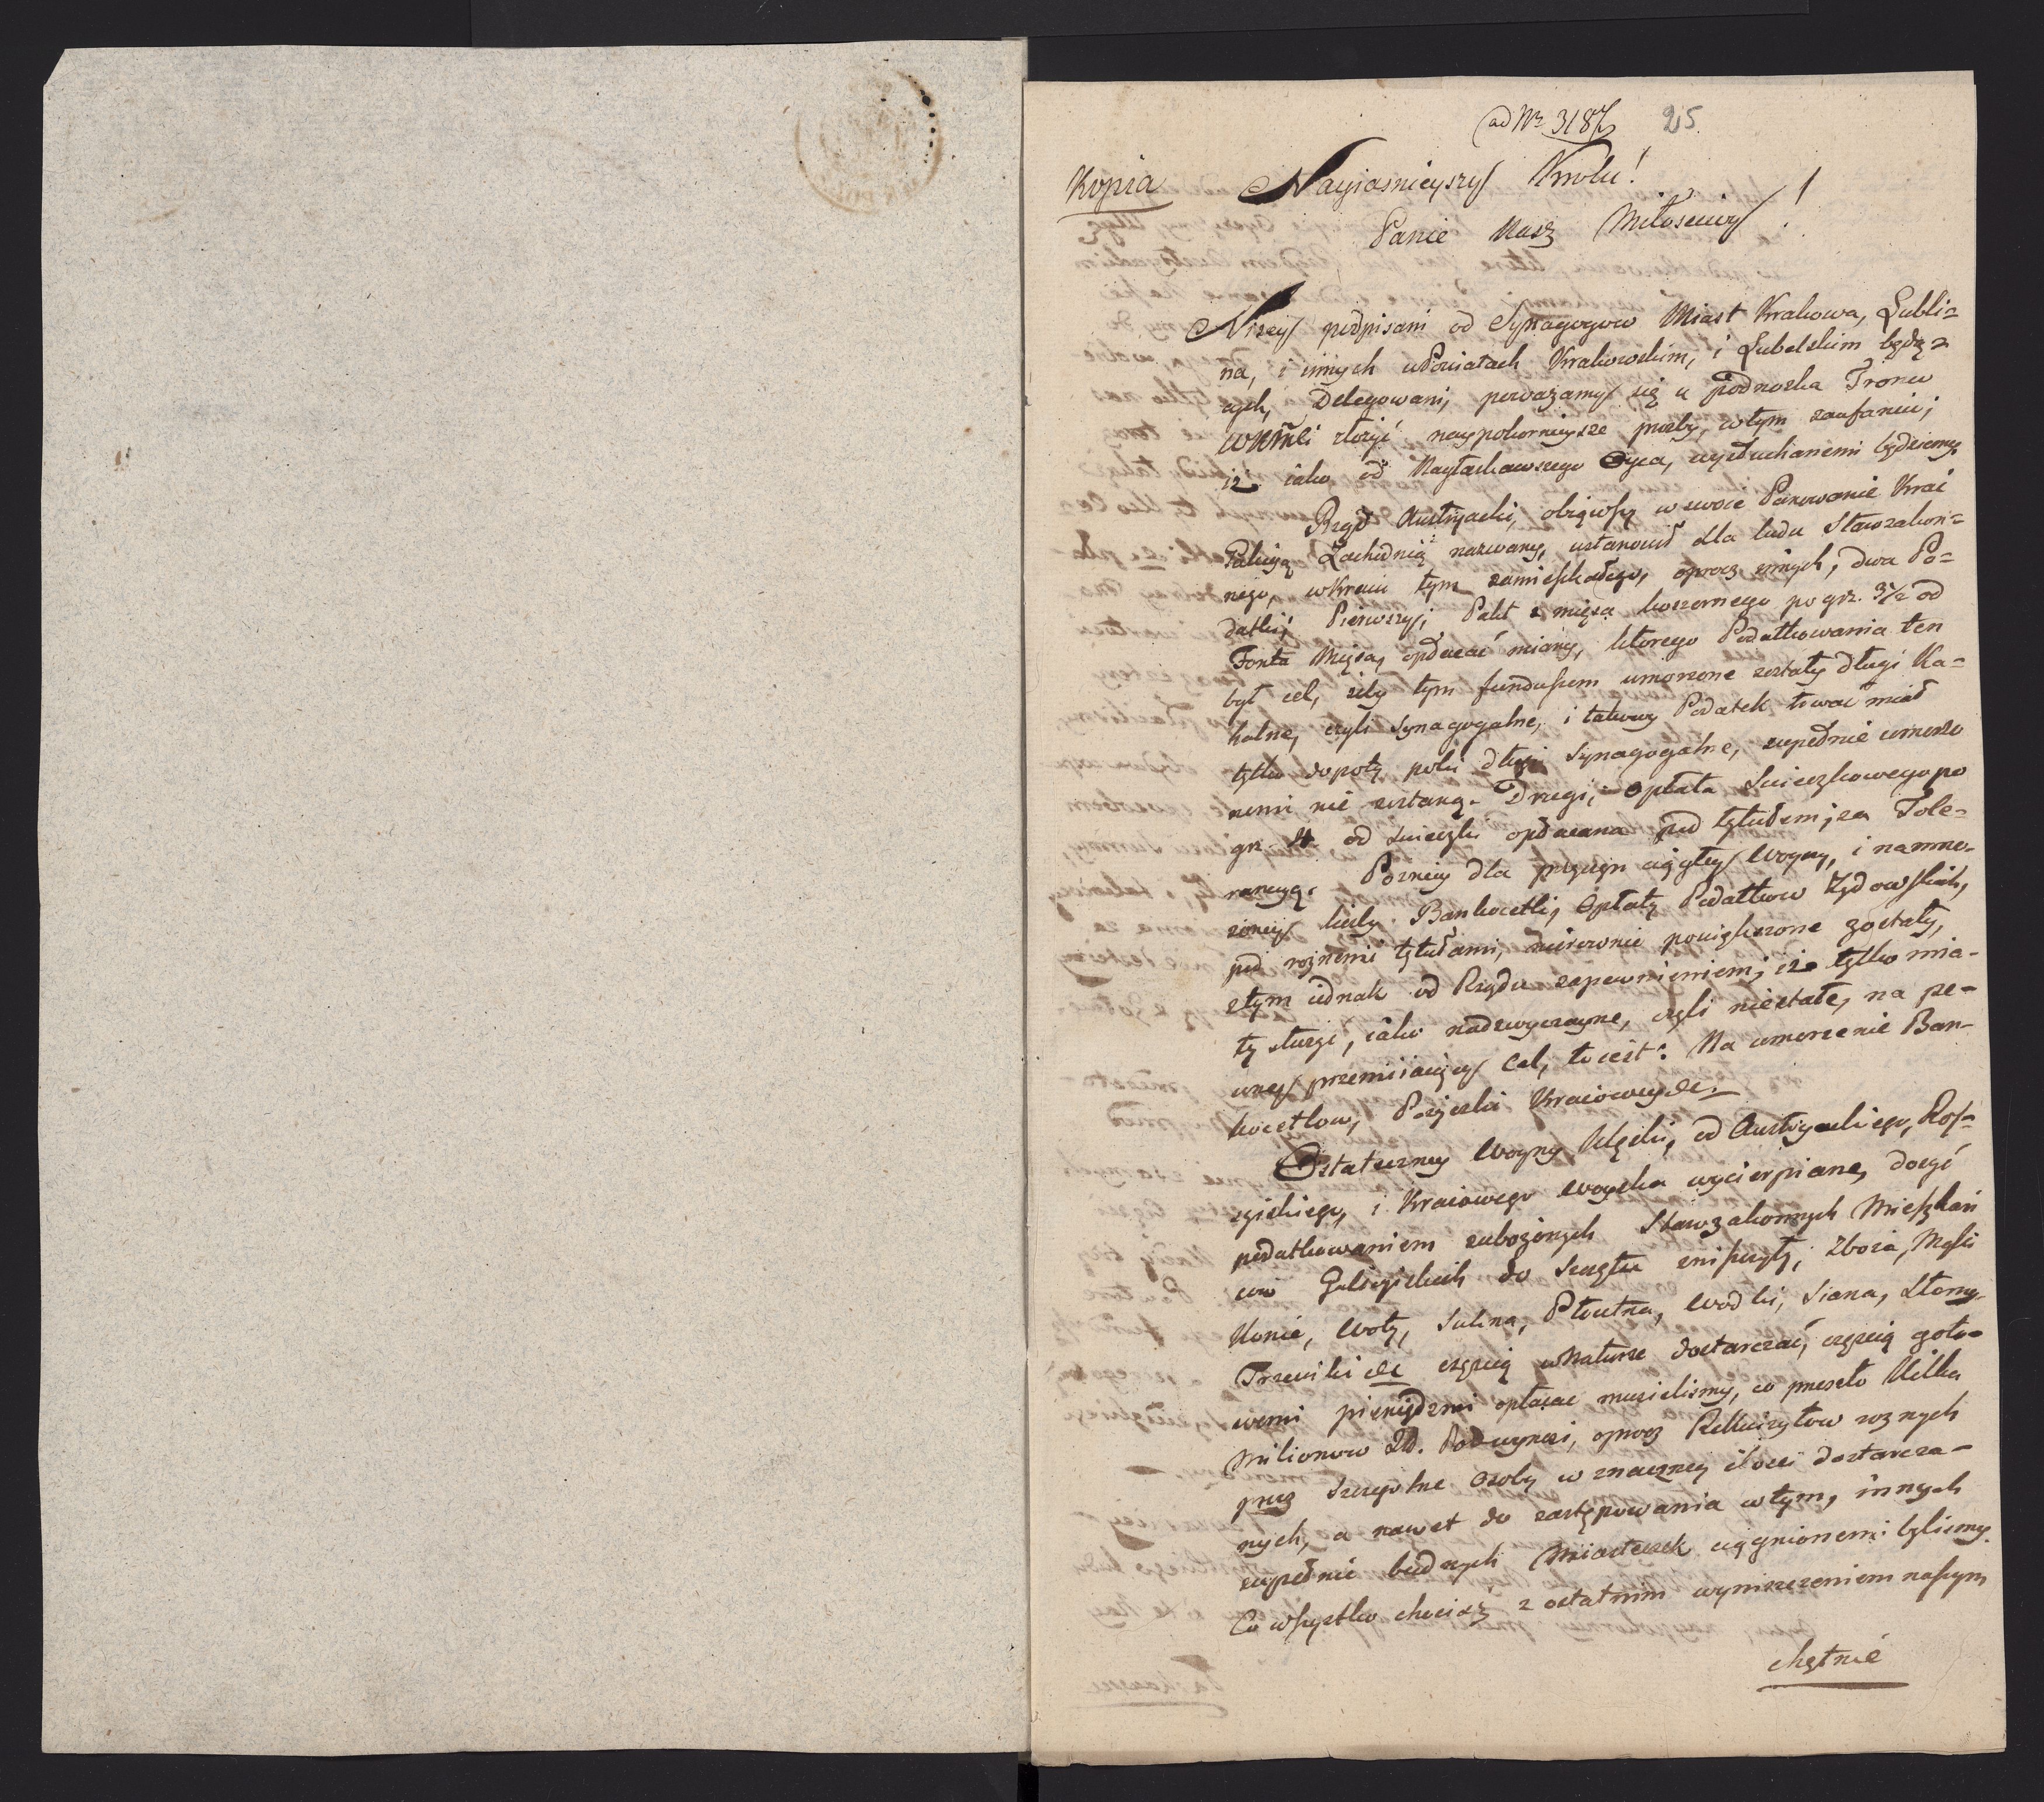 ad Nr 3187 25
Kopia
Nayiasnieyszy Krolu!
Panie Nasz Miłosciwy!
Niżey podpisani od Synagogow Miast Krakowa, Lubli=
na, i innych w Powiatach Krakowskim, i Lubelskim będą=
cych, Delegowani, poważamy się u podnożka Tronu
WKMci złożyć naypokornieysze prozby, w tym zaufaniu,
iż iako od Nayłaskawszego Oyca, wysłuchanemi będziemy.
Rząd Austryacki, obiąwszy w swoie Panowanie Krai
Galicyą Zachodnią nazwany, ustanowił dla ludu Starozakon=
nego, w Kraiu tym zamieszkałego, oprocz innych, dwa Po=
datki; Pierwszy, Pakt z mięsa koszernego po gr. 3½ od
Fonta Mięsa, opłacać miany, ktorego Podatkowania ten
był cel, żeby tym funduszem umorzone zostały długi Ka=
halne, czyli Synagogalne, i takowy Podatek trwać miał
tylko dopoty, poki długi Synagogalne, zupełnie umorzo
nemi nie zostaną. Drugi, Opłata Swieczkowego po
gr. 4. od Swieczki opłacana pod tytułem, za Tole=
rancyą. Pozniey dla przyczyn ciągłey Woyny, i namno=
żoney liczby Bankocetli, Opłaty Podatkow Żydowskich,
pod rożnemi tytułami, nierownie powiększone zostały,
z tym iednak od Rządu zapewnieniem, iż tylko mia=
ły służyć, iako nadzwyczayne, czyli niestałe, na pe=
wney przemiiaiący Cel, to iest: Na umorzenie Ban=
kocetlow, Pożyczki Kraiowey &c.
Ostateczney Woyny Klęski, od Austryackiego, Ros=
syiskiego, i Kraiowego Woyska wycierpiane, dosyć
podatkowaniem zubożonych Starozakonnych Mieszkań
cow Galicyiskich do Szczętu zniszczyły; Zboża, Mąki
Konie, Woły, Sukna, Płutna, Wodki, Siana, Słomy,
Trzewiki &c częscią w Naturze dostarczać, częscią goto=
wemi pieniędzmi opłacac musielismy, co przeszło Kilka
Milionow Zł. Pol. wynosi, oprocz Rekwizytow roznych
przez szczegolne Osoby w znaczney ilosci dostarcza=
nych, a nawet do zastępowania w tym, innych
zupełnie biednych Miasteczek ciągnionemi bylismy.
Co wszystko chociaż z ostatnim wyniszczeniem naszym
chętnie